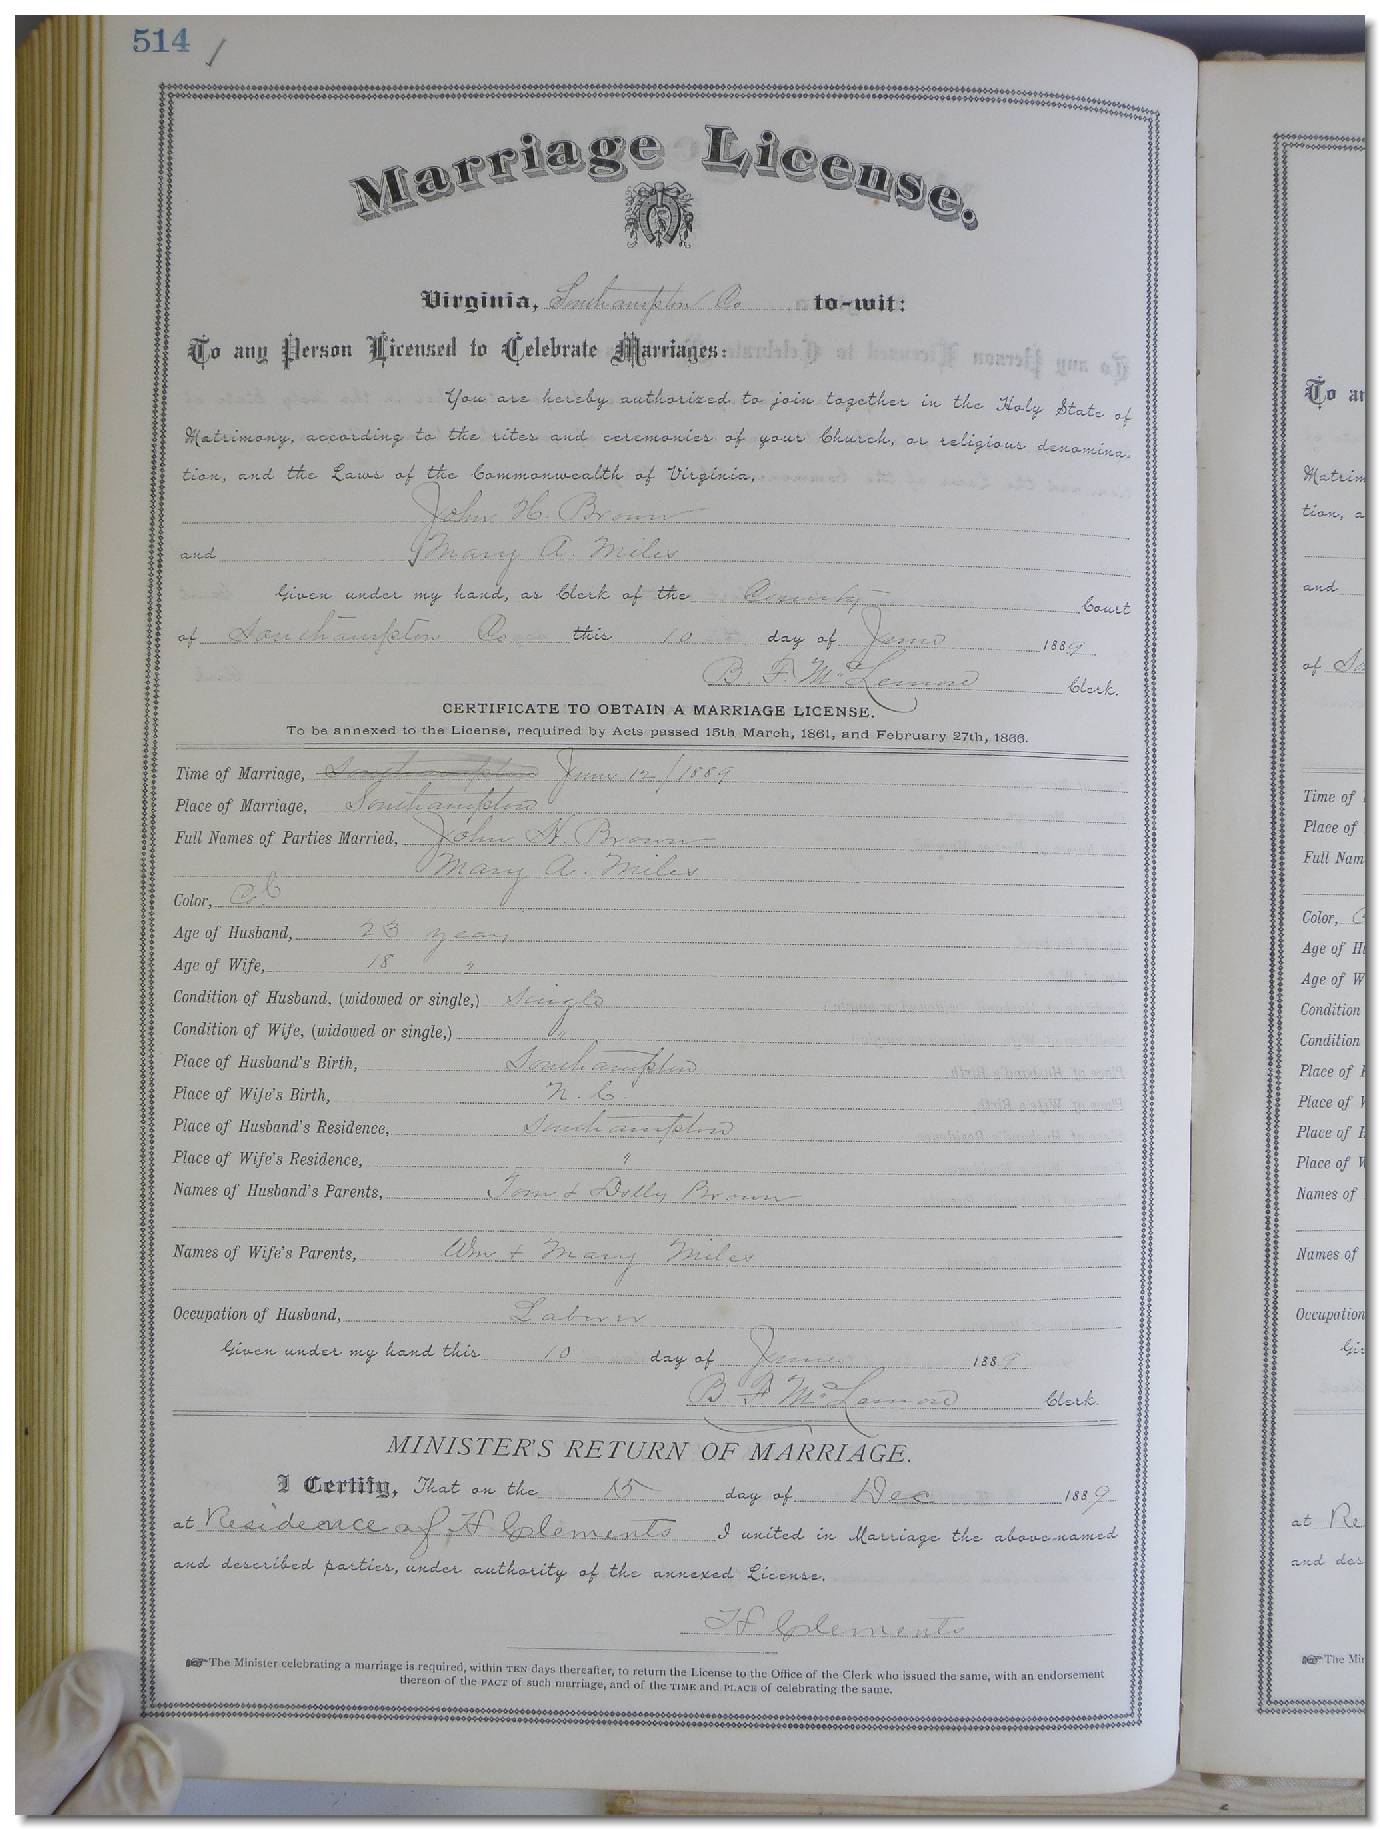 514 /
Marriage License.
Virginia, Southampton Co to-wit:
To any Person Licensed to Celebrate Marriages:
You are hereby authorized to join together in the Holy State of
Matrimony, according to the rites and ceremonies of your Church, or religious denomina-
tion, and the Laws of the Commonwealth of Virginia,
John H. Brown
and Mary A. Miles
Given under my hand, as Clerk of the County Court
of Southampton Co this 10 day of June 1889
B. F. McLemore Clerk.
CERTIFICATE TO OBTAIN A MARRIAGE LICENSE.
To be annexed to the License, required by Acts passed 15th March, 1861, and February 27th, 1866.
Time of Marriage, Southampton June 12/1889
Place of Marriage, Southampton
Full Names of Parties Married, John H. Brown
Mary A. Miles
Color,
Age of Husband, 23 years
Age of Wife, 18 "
Condition of Husband, (widowed or single,) Single
Condition of Wife, (widowed or single,) "
Place of Husband's Birth, Southampton
Place of Wife's Birth, N. C
Place of Husband's Residence, Southampton
Place of Wife's Residence, "
Names of Husband's Parents, Tom & Dolly Brown
Names of Wife's Parents, Wm & Mary Miles
Occupation of Husband, Laborer
Given under my hand this 10 day of June 1889
B F McLemore Clerk.
MINISTER'S RETURN OF MARRIAGE.
I Certify, That on the 15 day of Dec 1889
at Residence of H Clements I united in Marriage the above-named
and described parties, under authority of the annexed License.
H Clements
☞The Minister celebrating a marriage is required, within TEN days thereafter, to return the License to the Office of the Clerk who issued the same, with an endorsement
thereon of the FACT of such marriage, and of the TIME and PLACE of celebrating the same.
To an
Matrim
tion, a
and
of So
Time of
Place of
Full Nam
Color, C
Age of H
Age of W
Condition
Condition
Place of H
Place of W
Place of H
Place of W
Names of
Names of
Occupation
Gi
at Re
and des
☞The Min